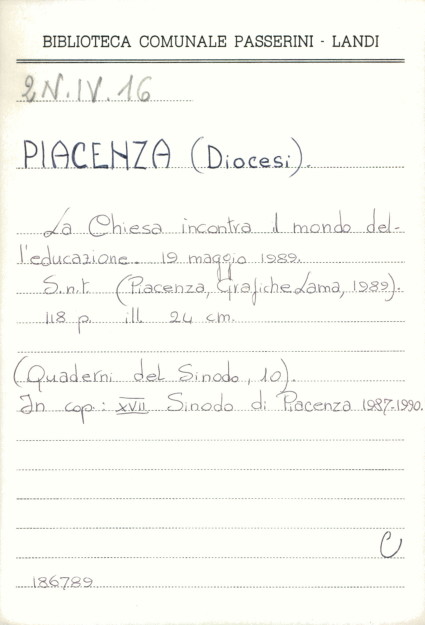 BIBLIOTECA COMUNALE PASSERINI - LANDI
2N.IV.16
PIACENZA (Diocesi).
La Chiesa incontra il mondo del-
l'educazione. 19 maggio 1989.
S.n.t. (Piacenza, Grafiche Lama, 1989).
118 p. ill. 24 cm.
(Quaderni del Sinodo, 10).
In cop.: XVII Sinodo di Piacenza 1987-1990.
C
186789